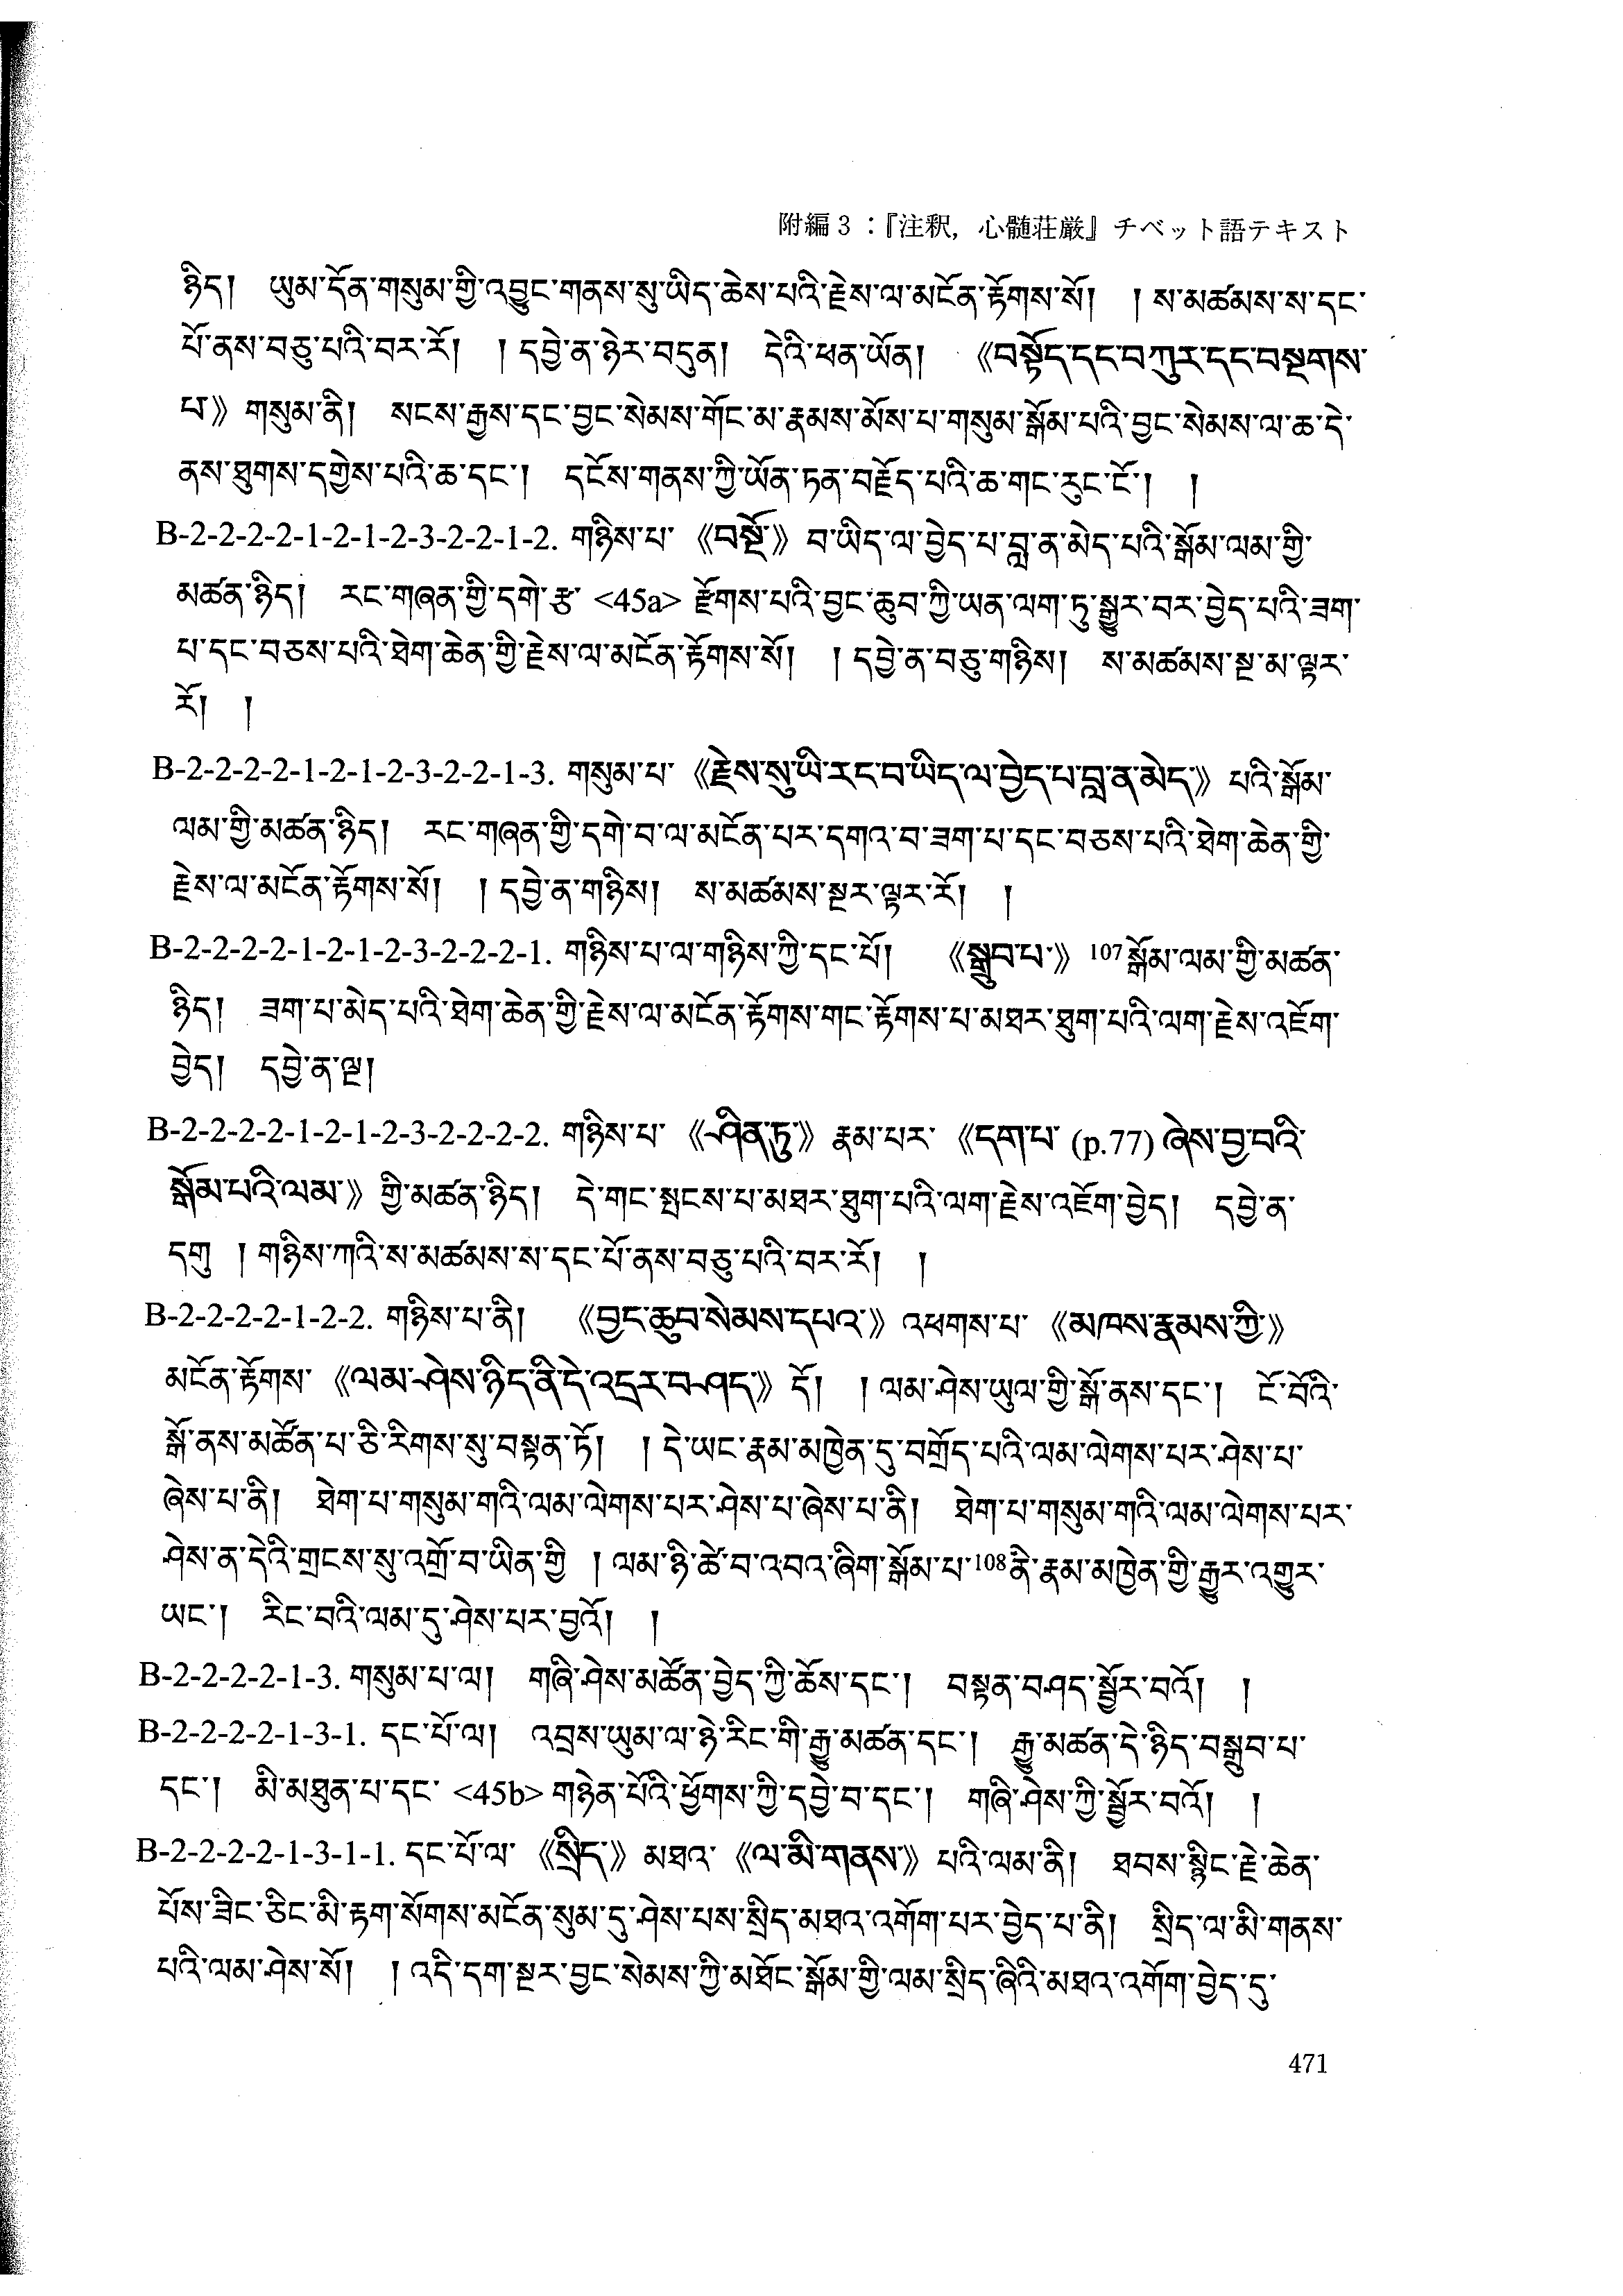 附編3：『注釈，心髄荘厳』チベット語テキスト
ཉིད། ཡུམ་དོན་གསུམ་གྱི་འབྱུང་གནས་སུ་ཡིད་ཆེས་པའི་རྗེས་ལ་མངོན་རྟོགས་སོ། །ས་མཚམས་ས་དང་
པོ་ནས་བཅུ་པའི་བར་རོ། །དབྱེ་ན་ཉེར་བདུན། དེའི་ཕན་ཡོན། 《བསྟོད་དང་བཀུར་དང་བསྔགས་
པ་》 གསུམ་ནི། སངས་རྒྱས་དང་བྱང་སེམས་གོང་མ་རྣམས་མོས་པ་གསུམ་སྒོམ་པའི་བྱང་སེམས་ལ་ཆ་དེ་
ནས་ཐུགས་དགྱེས་པའི་ཆ་དང་། དངོས་གནས་ཀྱི་ཡོན་ཏན་བརྗོད་པའི་ཆ་གང་རུང་ངོ་། །
B-2-2-2-2-1-2-1-2-3-2-2-1-2. གཉིས་པ་ 《བསྔོ་》 བ་ཡིད་ལ་བྱེད་པ་བླ་ན་མེད་པའི་སྒོམ་ལམ་གྱི་
མཚན་ཉིད། རང་གཞན་གྱི་དགེ་རྩ་ <45a> རྫོགས་པའི་བྱང་ཆུབ་ཀྱི་ཡན་ལག་ཏུ་སྒྱུར་བར་བྱེད་པའི་ཟག་
པ་དང་བཅས་པའི་ཐེག་ཆེན་གྱི་རྗེས་ལ་མངོན་རྟོགས་སོ། །དབྱེ་ན་བཅུ་གཉིས། ས་མཚམས་སྔ་མ་ལྟར་
རོ། །
B-2-2-2-2-1-2-1-2-3-2-2-1-3. གསུམ་པ་ 《རྗེས་སུ་ཡི་རང་བ་ཡིད་ལ་བྱེད་པ་བླ་ན་མེད་》 པའི་སྒོམ་
ལམ་གྱི་མཚན་ཉིད། རང་གཞན་གྱི་དགེ་བ་ལ་མངོན་པར་དགའ་བ་ཟག་པ་དང་བཅས་པའི་ཐེག་ཆེན་གྱི་
རྗེས་ལ་མངོན་རྟོགས་སོ། །དབྱེ་ན་གཉིས། ས་མཚམས་སྔར་ལྟར་རོ། །
B-2-2-2-2-1-2-1-2-3-2-2-2-1. གཉིས་པ་ལ་གཉིས་ཀྱི་དང་པོ། 《སྒྲུབ་པ་》 107སྒོམ་ལམ་གྱི་མཚན་
ཉིད། ཟག་པ་མེད་པའི་ཐེག་ཆེན་གྱི་རྗེས་ལ་མངོན་རྟོགས་གང་རྟོགས་པ་མཐར་ཐུག་པའི་ལག་རྗེས་འཇོག་
བྱེད། དབྱེ་ན་ལྔ།
B-2-2-2-2-1-2-1-2-3-2-2-2-2. གཉིས་པ་ 《ཤིན་ཏུ་》 རྣམ་པར་ 《དག་པ་ (p.77) ཞེས་བྱ་བའི་
སྒོམ་པའི་ལམ་》 གྱི་མཚན་ཉིད། དེ་གང་སྤངས་པ་མཐར་ཐུག་པའི་ལག་རྗེས་འཇོག་བྱེད། དབྱེ་ན་
དགུ །གཉིས་ཀའི་ས་མཚམས་ས་དང་པོ་ནས་བཅུ་པའི་བར་རོ། །
B-2-2-2-2-1-2-2. གཉིས་པ་ནི། 《བྱང་ཆུབ་སེམས་དཔའ་》 འཕགས་པ་ 《མཁས་རྣམས་ཀྱི་》
མངོན་རྟོགས་ 《ལམ་ཤེས་ཉིད་ནི་དེ་འདྲར་བཤད་》 དོ། །ལམ་ཤེས་ཡུལ་གྱི་སྒོ་ནས་དང་། ངོ་བོའི་
སྒོ་ནས་མཚོན་པ་ཅི་རིགས་སུ་བསྟན་ཏོ། །དེ་ཡང་རྣམ་མཁྱེན་དུ་བགྲོད་པའི་ལམ་ལེགས་པར་ཤེས་པ་
ཞེས་པ་ནི། ཐེག་པ་གསུམ་གའི་ལམ་ལེགས་པར་ཤེས་པ་ཞེས་པ་ནི། ཐེག་པ་གསུམ་གའི་ལམ་ལེགས་པར་
ཤེས་ན་དེའི་གྲངས་སུ་འགྲོ་བ་ཡིན་གྱི །ལམ་ཉི་ཚེ་བ་འབའ་ཞིག་སྒོམ་པ་108ནི་རྣམ་མཁྱེན་གྱི་རྒྱུར་འགྱུར་
ཡང་། རིང་བའི་ལམ་དུ་ཤེས་པར་བྱའོ། །
B-2-2-2-2-1-3. གསུམ་པ་ལ། གཞི་ཤེས་མཚོན་བྱེད་ཀྱི་ཆོས་དང་། བསྟན་བཤད་སྦྱོར་བའོ། །
B-2-2-2-2-1-3-1. དང་པོ་ལ། འབྲས་ཡུམ་ལ་ཉེ་རིང་གི་རྒྱུ་མཚན་དང་། རྒྱུ་མཚན་དེ་ཉིད་བསྒྲུབ་པ་
དང་། མི་མཐུན་པ་དང་ <45b> གཉེན་པོའི་ཕྱོགས་ཀྱི་དབྱེ་བ་དང་། གཞི་ཤེས་ཀྱི་སྦྱོར་བའོ། །
B-2-2-2-2-1-3-1-1. དང་པོ་ལ་ 《སྲིད་》 མཐའ་ 《ལ་མི་གནས་》 པའི་ལམ་ནི། ཐབས་སྙིང་རྗེ་ཆེན་
པོས་ཟིང་ཅིང་མི་རྟག་སོགས་མངོན་སུམ་དུ་ཤེས་པས་སྲིད་མཐའ་འགོག་པར་བྱེད་པ་ནི། སྲིད་ལ་མི་གནས་
པའི་ལམ་ཤེས་སོ། །འདི་དག་སྔར་བྱང་སེམས་ཀྱི་མཐོང་སྒོམ་གྱི་ལམ་སྲིད་ཞིའི་མཐའ་འགོག་བྱེད་དུ་
471